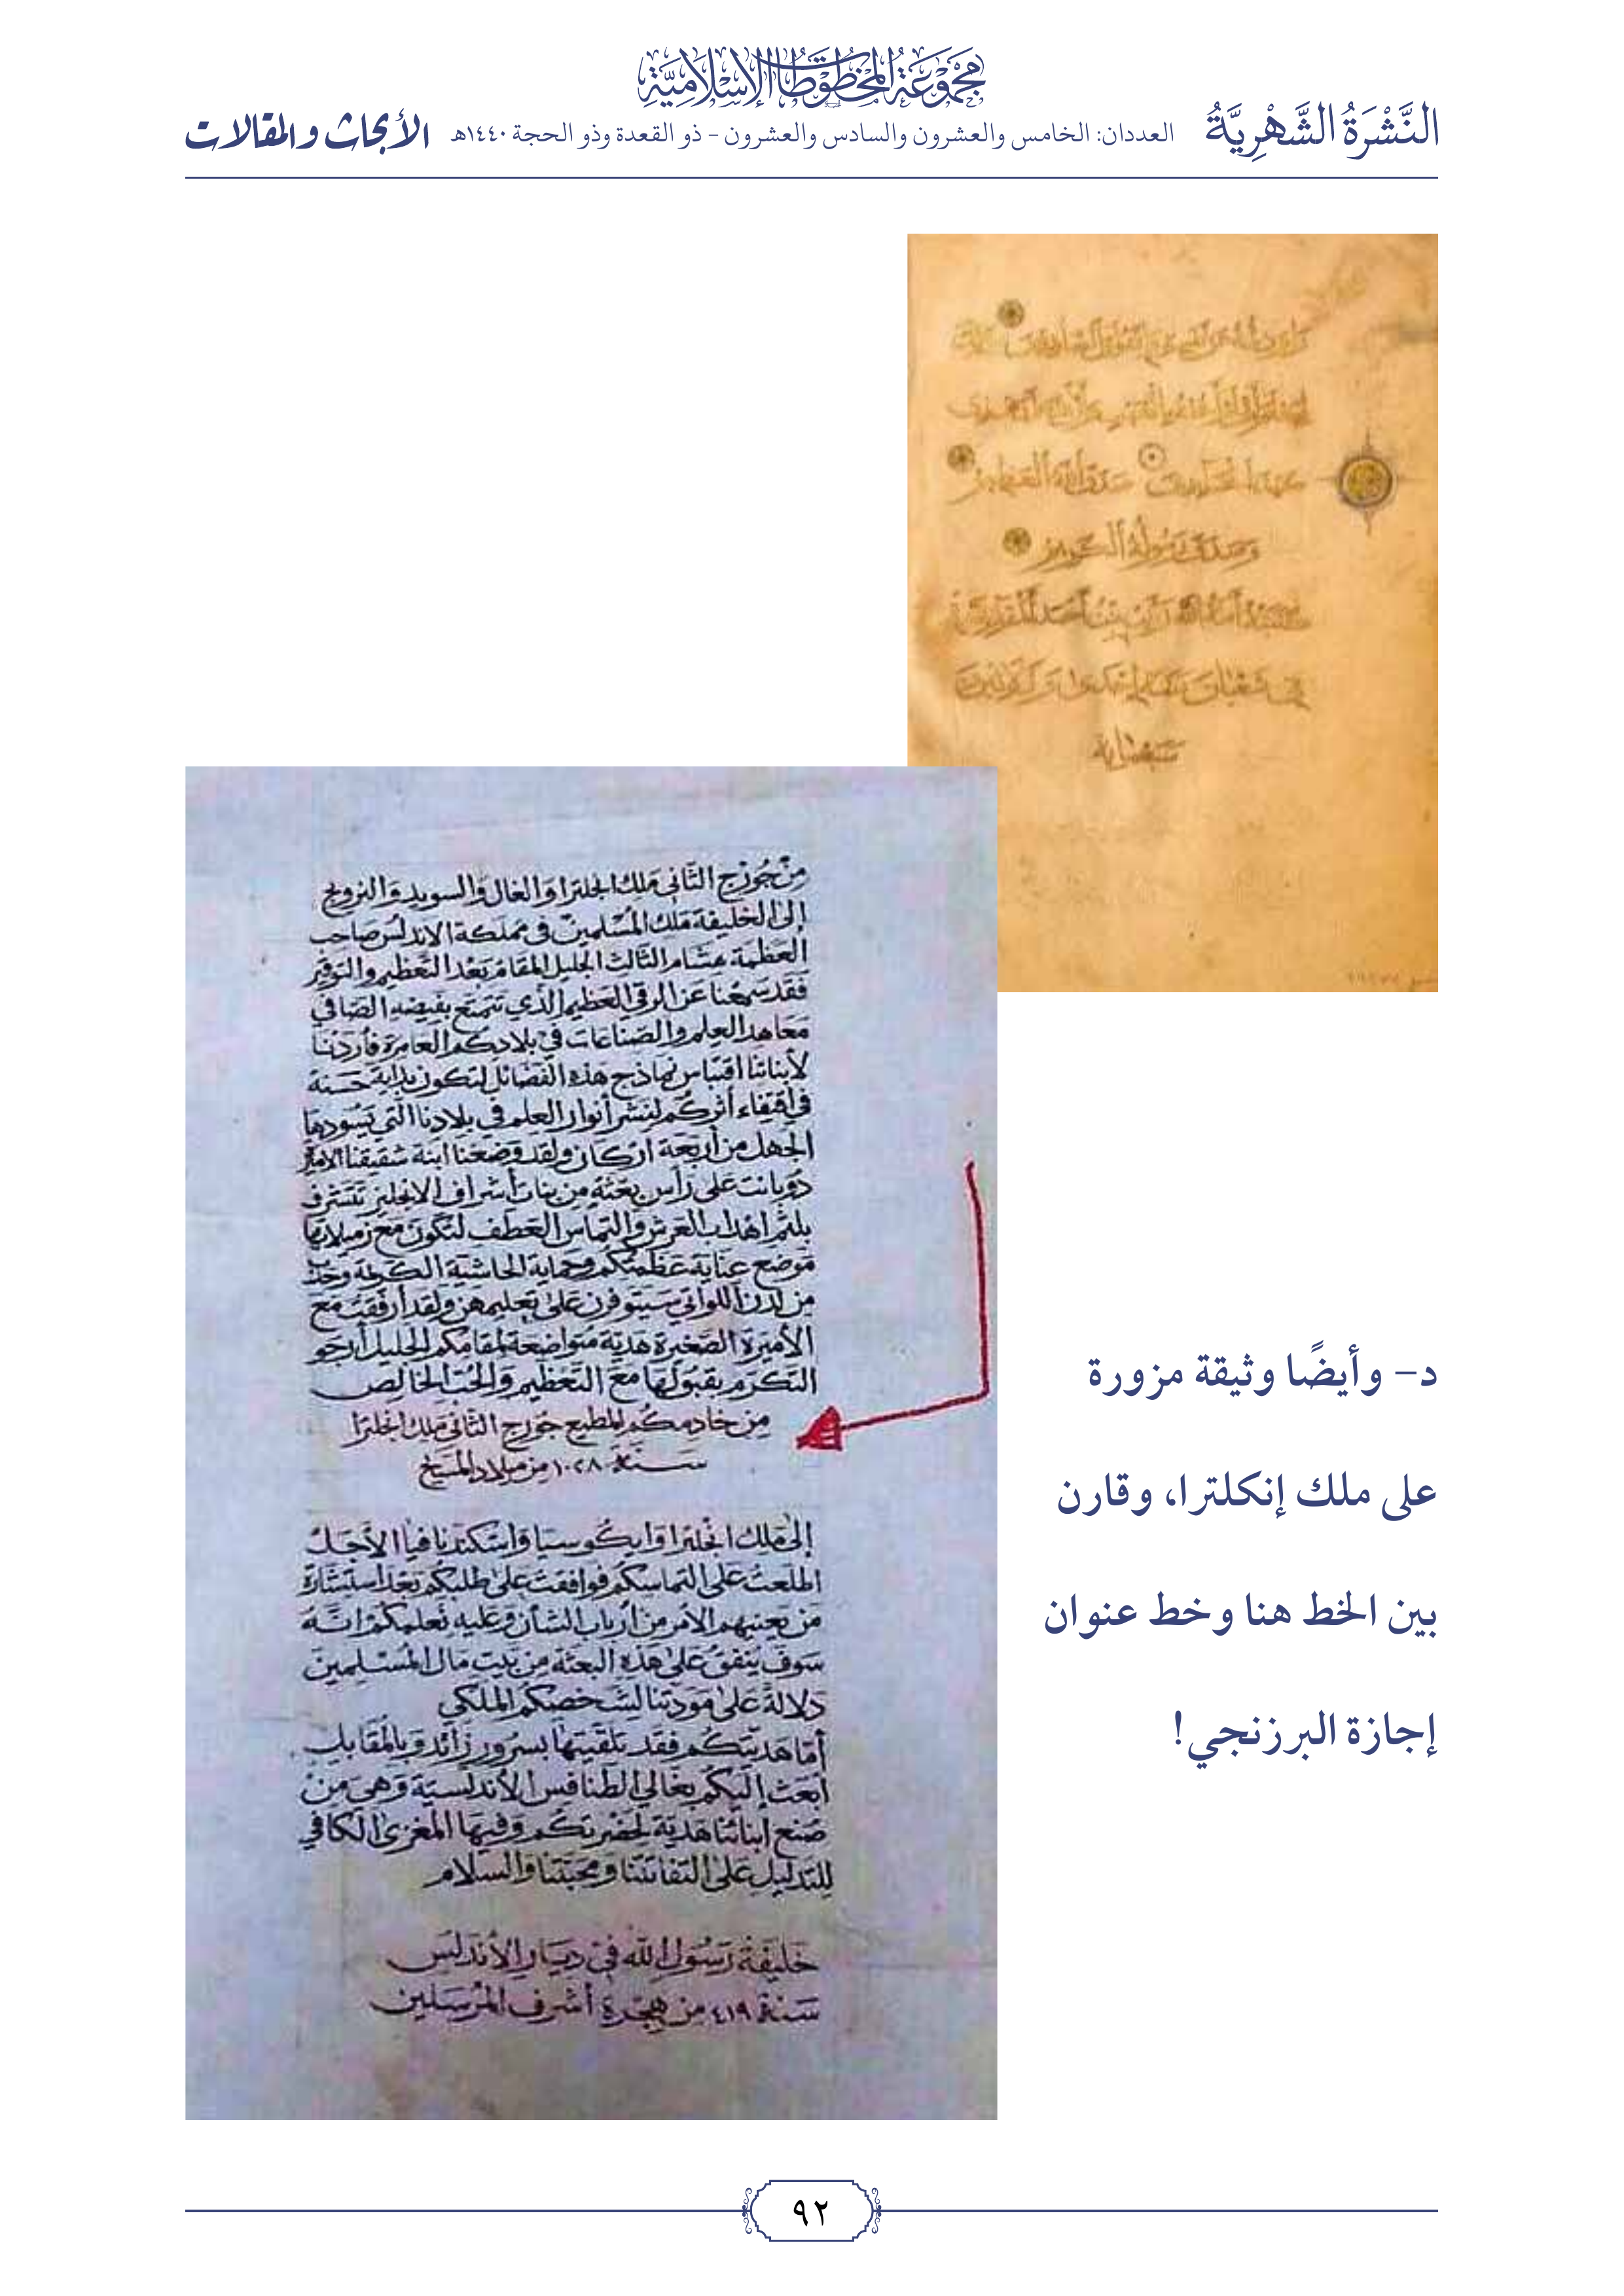 مجموعة المخطوطات الإسلامية
النَّشْرَةُ الشَّهْرِيَّةُ
العددان: الخامس والعشرون والسادس والعشرون – ذو القعدة وذو الحجة ١٤٤٠هـ
الأبحاث والمقالات
صدق الله العظيم
وصدق رسوله الكريم
سبعماية
من جورج الثاني ملك انجلترا والغال والسويد والنرويج
إلى الخليفة ملك المسلمين في مملكة الاندلس صاحب
العظمة هشام الثالث الجليل المقام بعد التعظيم والتوقير
فقد سمعنا عن الرقي العظيم الذي تتمتع بفيضه الصافي
معاهد العلم والصناعات في بلادكم العامرة فأردنا
لأبنائنا اقتباس نماذج هذه الفضائل لتكون بداية حسنة
في اقتفاء أثركم لنشر أنوار العلم في بلادنا التي يسودها
الجهل من أربعة اركان ولقد وضعنا ابنة شقيقنا الاميرة
دوبانت على رأس بعثة من بنات أشراف الانجليز تتشرف
بلثم اهداب العرش والتماس العطف لتكون مع زميلاتها
موضع عناية عظمتكم وحماية الحاشية الكريمة وحدب
من لدن اللواتي سيتوفرن على تعليمهن ولقد أرفقت مع
الأميرة الصغيرة هدية متواضعة لمقامكم الجليل أرجو
التكرم بقبولها مع التعظيم والحب الخالص
من خادمكم المطيع جورج الثاني ملك انجلترا
سنة ١٠٢٨ من ميلاد المسيح
إلى ملك انجلترا وايكوسيا واسكندنافيا الأجل
اطلعت على التماسكم فوافقت على طلبكم بعد استشارة
من يعنيهم الامر من أرباب الشأن وعليه نعلمكم انه
سوف ينفق على هذه البعثة من بيت مال المسلمين
دلالة على مودتنا لشخصكم الملكي
أما هديتكم فقد تلقيتها بسرور زائد وبالمقابل
أبعث إليكم بغالي الطنافس الأندلسية وهي من
صنع ابنائنا هدية لحضرتكم وفيها المغزى الكافي
للتدليل على التفاتتنا ومحبتنا والسلام
خليفة رسول الله في ديار الأندلس
سنة ٤١٩ من هجرة أشرف المرسلين
د- وأيضًا وثيقة مزورة
على ملك إنكلترا، وقارن
بين الخط هنا وخط عنوان
إجازة البرزنجي!
٩٢